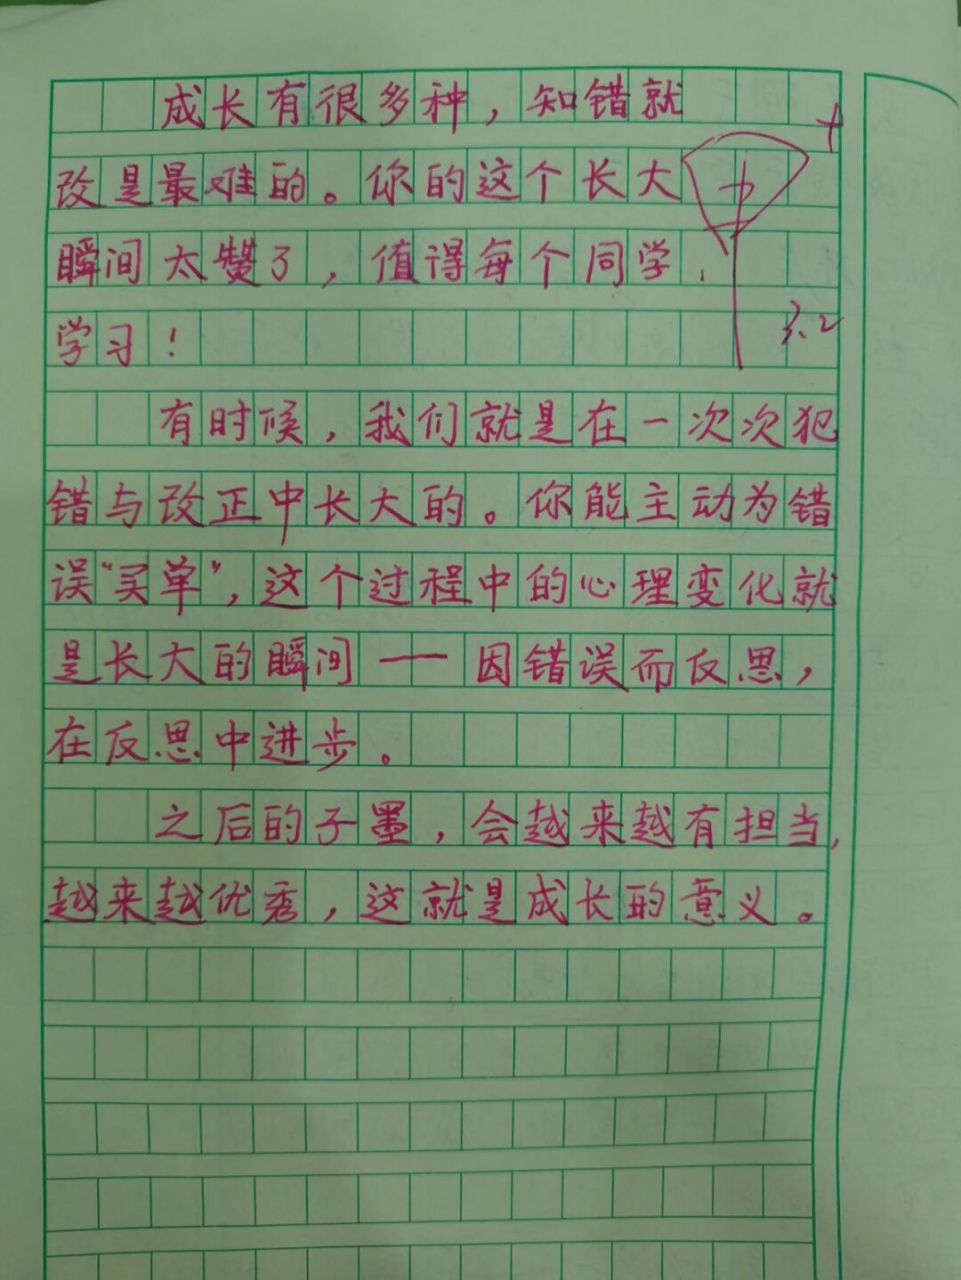 成长有很多种，知错就
改是最难的。你的这个长大
瞬间太赞了，值得每个同学
学习！
3.2
有时候，我们就是在一次次犯
错与改正中长大的。你能主动为错
误“买单”，这个过程中的心理变化就
是长大的瞬间——因错误而反思，
在反思中进步。
之后的子墨，会越来越有担当，
越来越优秀，这就是成长的意义。